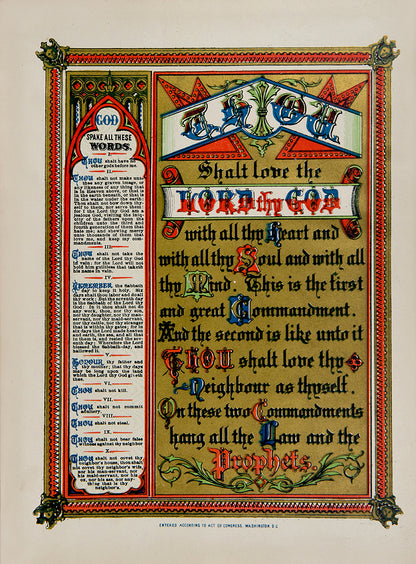 GOD
SPAKE ALL THESE
WORDS.
I.
THOU shalt have no
other gods before me.
II.
THOU shalt not make unto
thee any graven image, or
any likeness of any thing that
is in heaven above, or that is
in the earth beneath, or that is
in the water under the earth:
Thou shalt not bow down thy-
self to them, nor serve them:
for I the Lord thy God am a
jealous God, visiting the iniqu-
ity of the fathers upon the
children unto the third and
fourth generation of them that
hate me; and shewing mercy
unto thousands of them that
love me, and keep my com-
mandments.
III.
THOU shalt not take the
name of the Lord thy God
in vain: for the Lord will not
hold him guiltless that taketh
his name in vain.
IV.
REMEMBER the Sabbath
day to keep it holy. Six
days shalt thou labor and do all
thy work: But the seventh day
is the Sabbath of the Lord thy
God: in it thou shalt not do any
work, thou, nor thy son,
nor thy daughter, thy man-
servant, nor thy maid-servant,
nor thy cattle, nor thy stranger
that is within thy gates: for in
six days the Lord made heaven
and earth, the sea, and all that
in them is, and rested the sev-
enth day: Wherefore the Lord
blessed the Sabbath-day, and
hallowed it.
V.
HONOUR thy father and
thy mother; that thy days
may be long upon the land
which the Lord thy God giveth
thee.
VI.
THOU shalt not kill.
VII.
THOU shalt not commit
adultery.
VIII.
THOU shalt not steal.
IX.
THOU shalt not bear false
witness against thy neighbor
X.
THOU shalt not covet thy
neighbor's house, thou shalt
not covet thy neighbor's wife,
nor his man-servant, nor
his maid-servant, nor his
ox, nor his ass, nor any-
thing that is thy
neighbor's.
THOU
Shalt love the
LORD thy GOD
with all thy Heart and
with all thy Soul and with all
thy Mind: This is the first
and great Commandment.
And the second is like unto it
THOU shalt love thy
Neighbour as thyself.
On these two Commandments
hang all the Law and the
Prophets.
ENTERED ACCORDING TO ACT OF CONGRESS, WASHINGTON D.C.